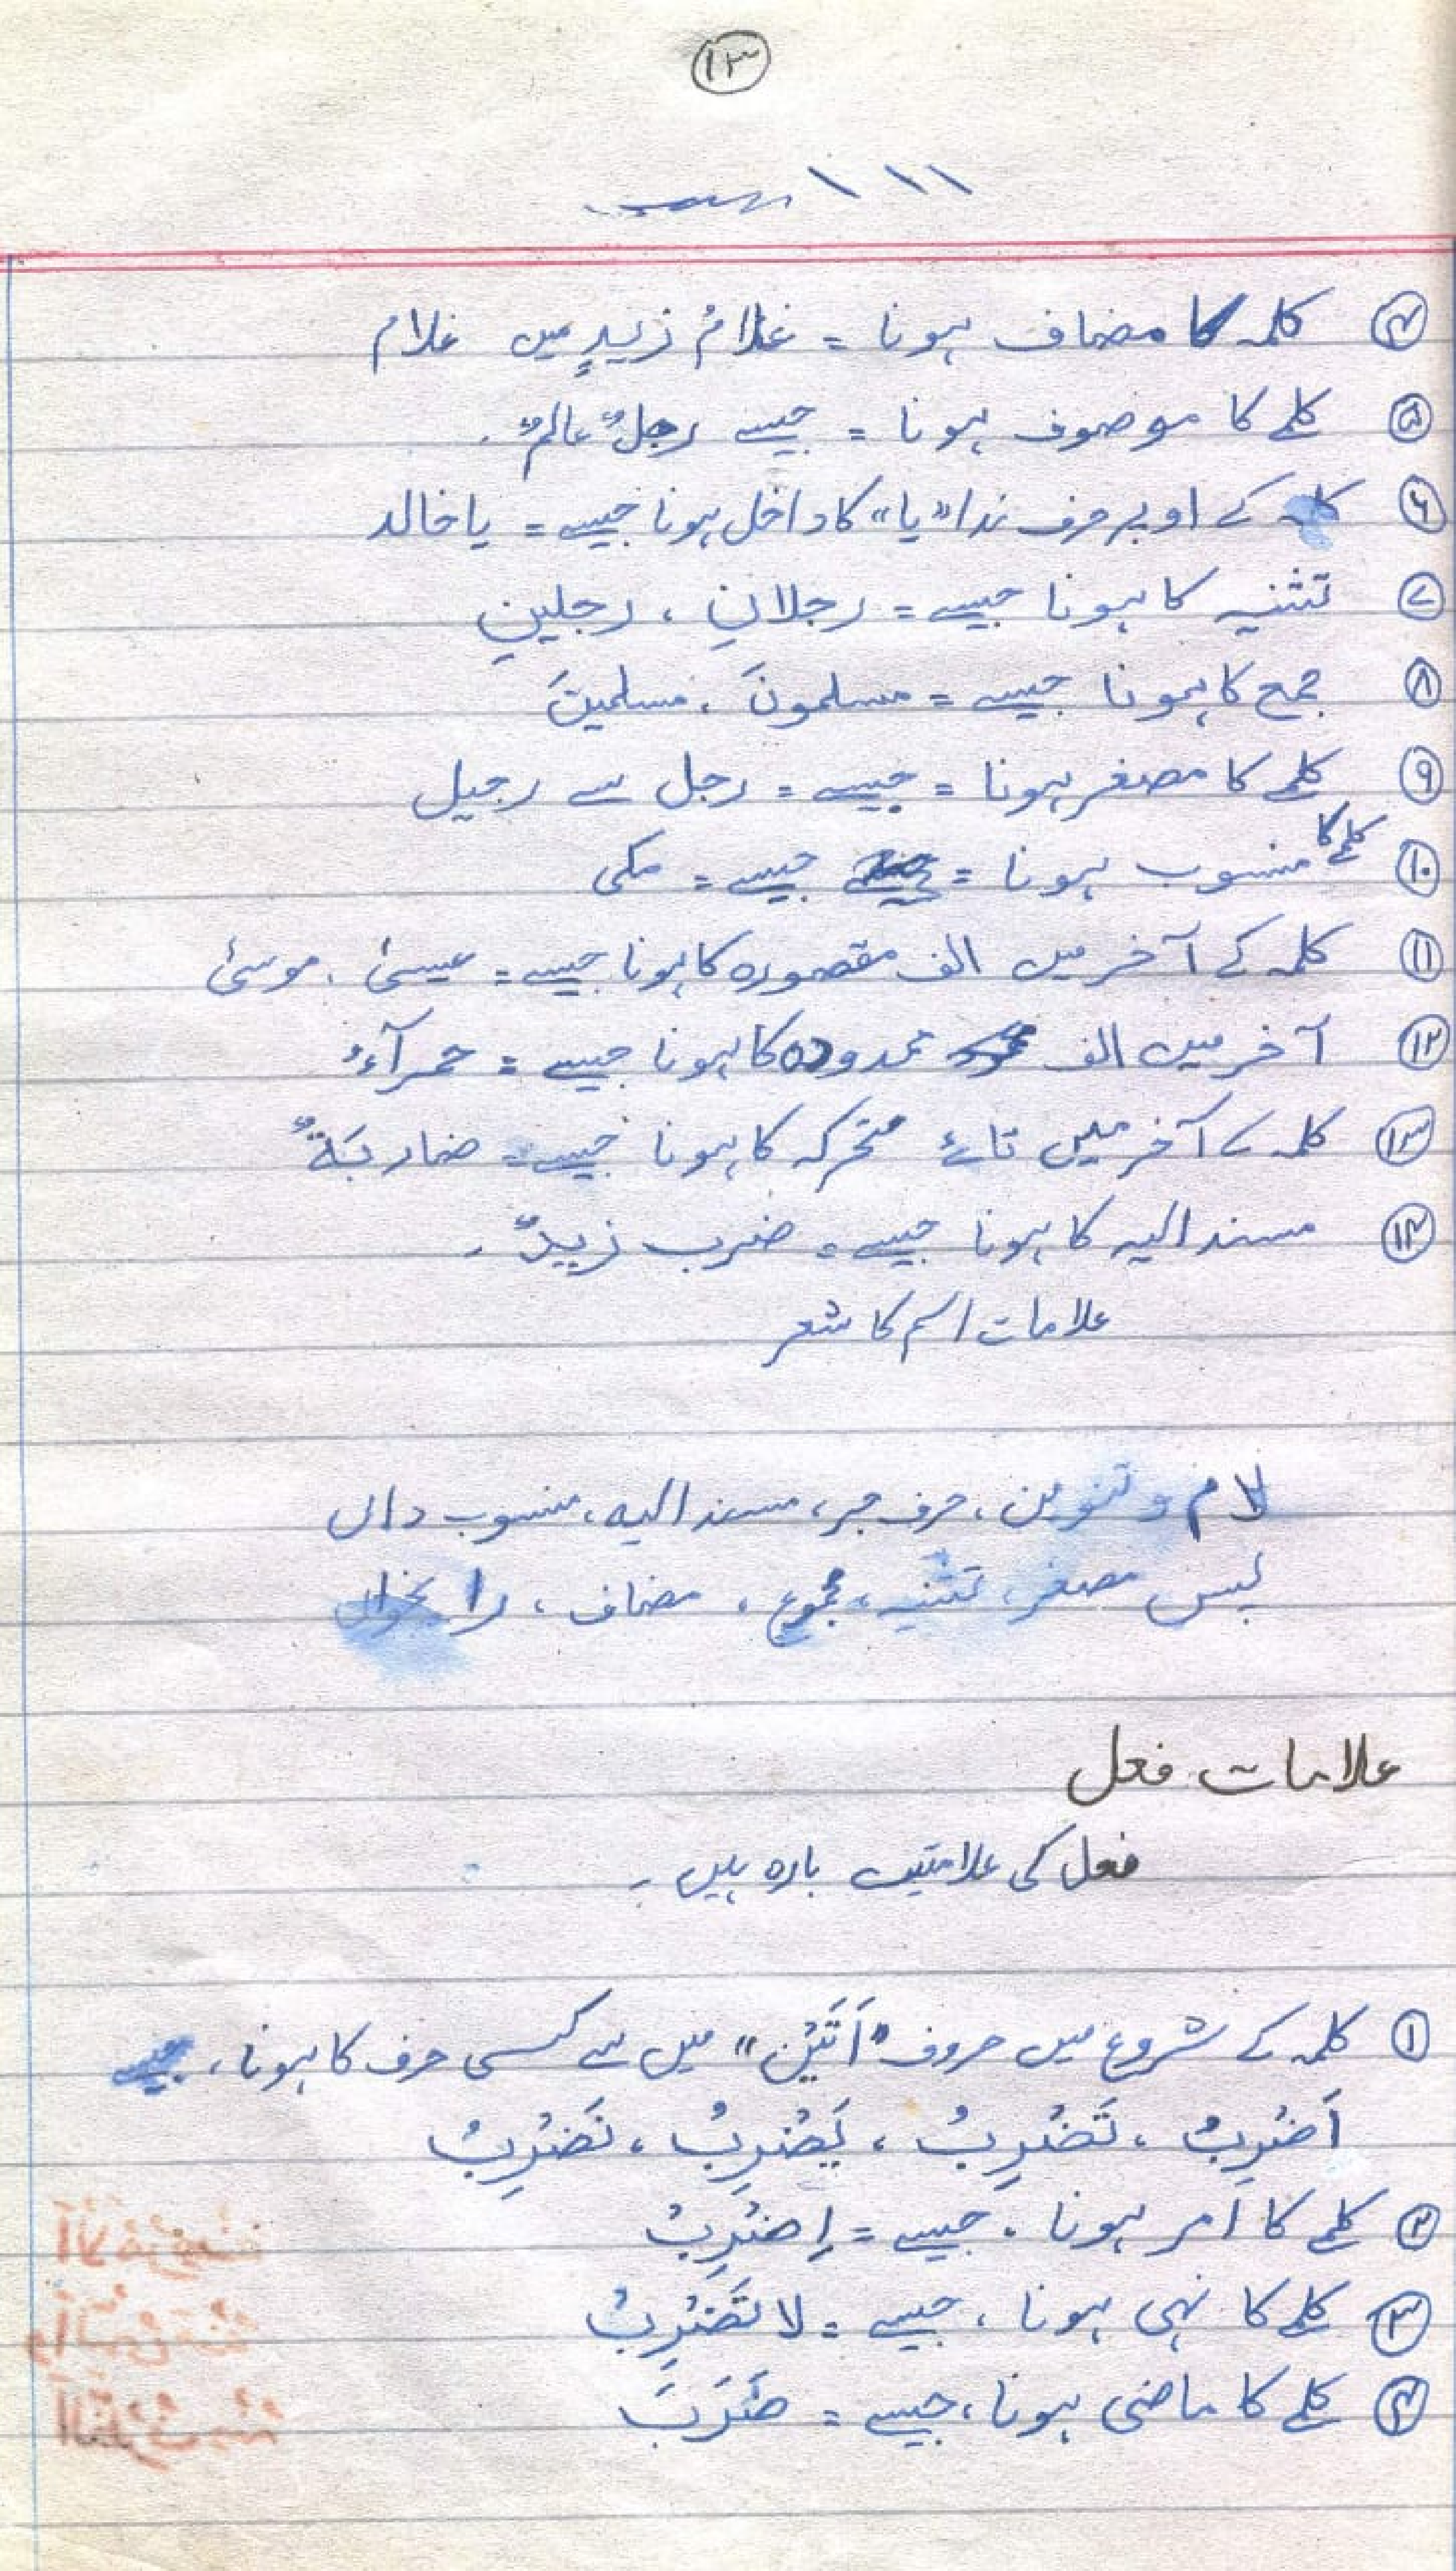 ١٣
④ کلمہ کا مضاف ہونا = غلامُ زیدٍ میں غلام
⑤ کلمے کا موصوف ہونا = جیسے رجلٌ عالمٌ۔
⑥ کلمہ کے اوپر حرف ندا "یا" کا داخل ہونا جیسے = یا خالد
⑦ تثنیہ کا ہونا جیسے = رجلانِ ، رجلینِ
⑧ جمع کا ہونا جیسے = مسلمونَ ، مسلمینَ
⑨ کلمے کا مصغر ہونا = جیسے = رجل سے رجیل
⑩ کلمے کا منسوب ہونا = جیسے = مکی
⑪ کلمہ کے آخر میں الف مقصورہ کا ہونا جیسے = عیسیٰ ، موسیٰ
⑫ آخر میں الف ممدودہ کا ہونا جیسے = حمرآءُ
⑬ کلمہ کے آخر میں تائے متحرکہ کا ہونا جیسے = ضاربَةٌ
⑭ مسند الیہ کا ہونا جیسے = ضرب زیدٌ ۔
علامات اسم کا شعر
لام و تنوین ، حرف جر ، مسند الیہ ، منسوب داں
پس مصغر ، تثنیہ ، مجموع ، مضاف ، را بخواں
علامات فعل
فعل کی علامتیں بارہ ہیں ۔
① کلمہ کے شروع میں حروف "اَتَیْن" میں سے کسی حرف کا ہونا ، جیسے
اَضْرِبُ ، تَضْرِبُ ، یَضْرِبُ ، نَضْرِبُ
② کلمے کا امر ہونا ، جیسے = اِضْرِبْ
③ کلمے کا نہی ہونا ، جیسے = لا تَضْرِبْ
④ کلمے کا ماضی ہونا ، جیسے = ضَرَبَ